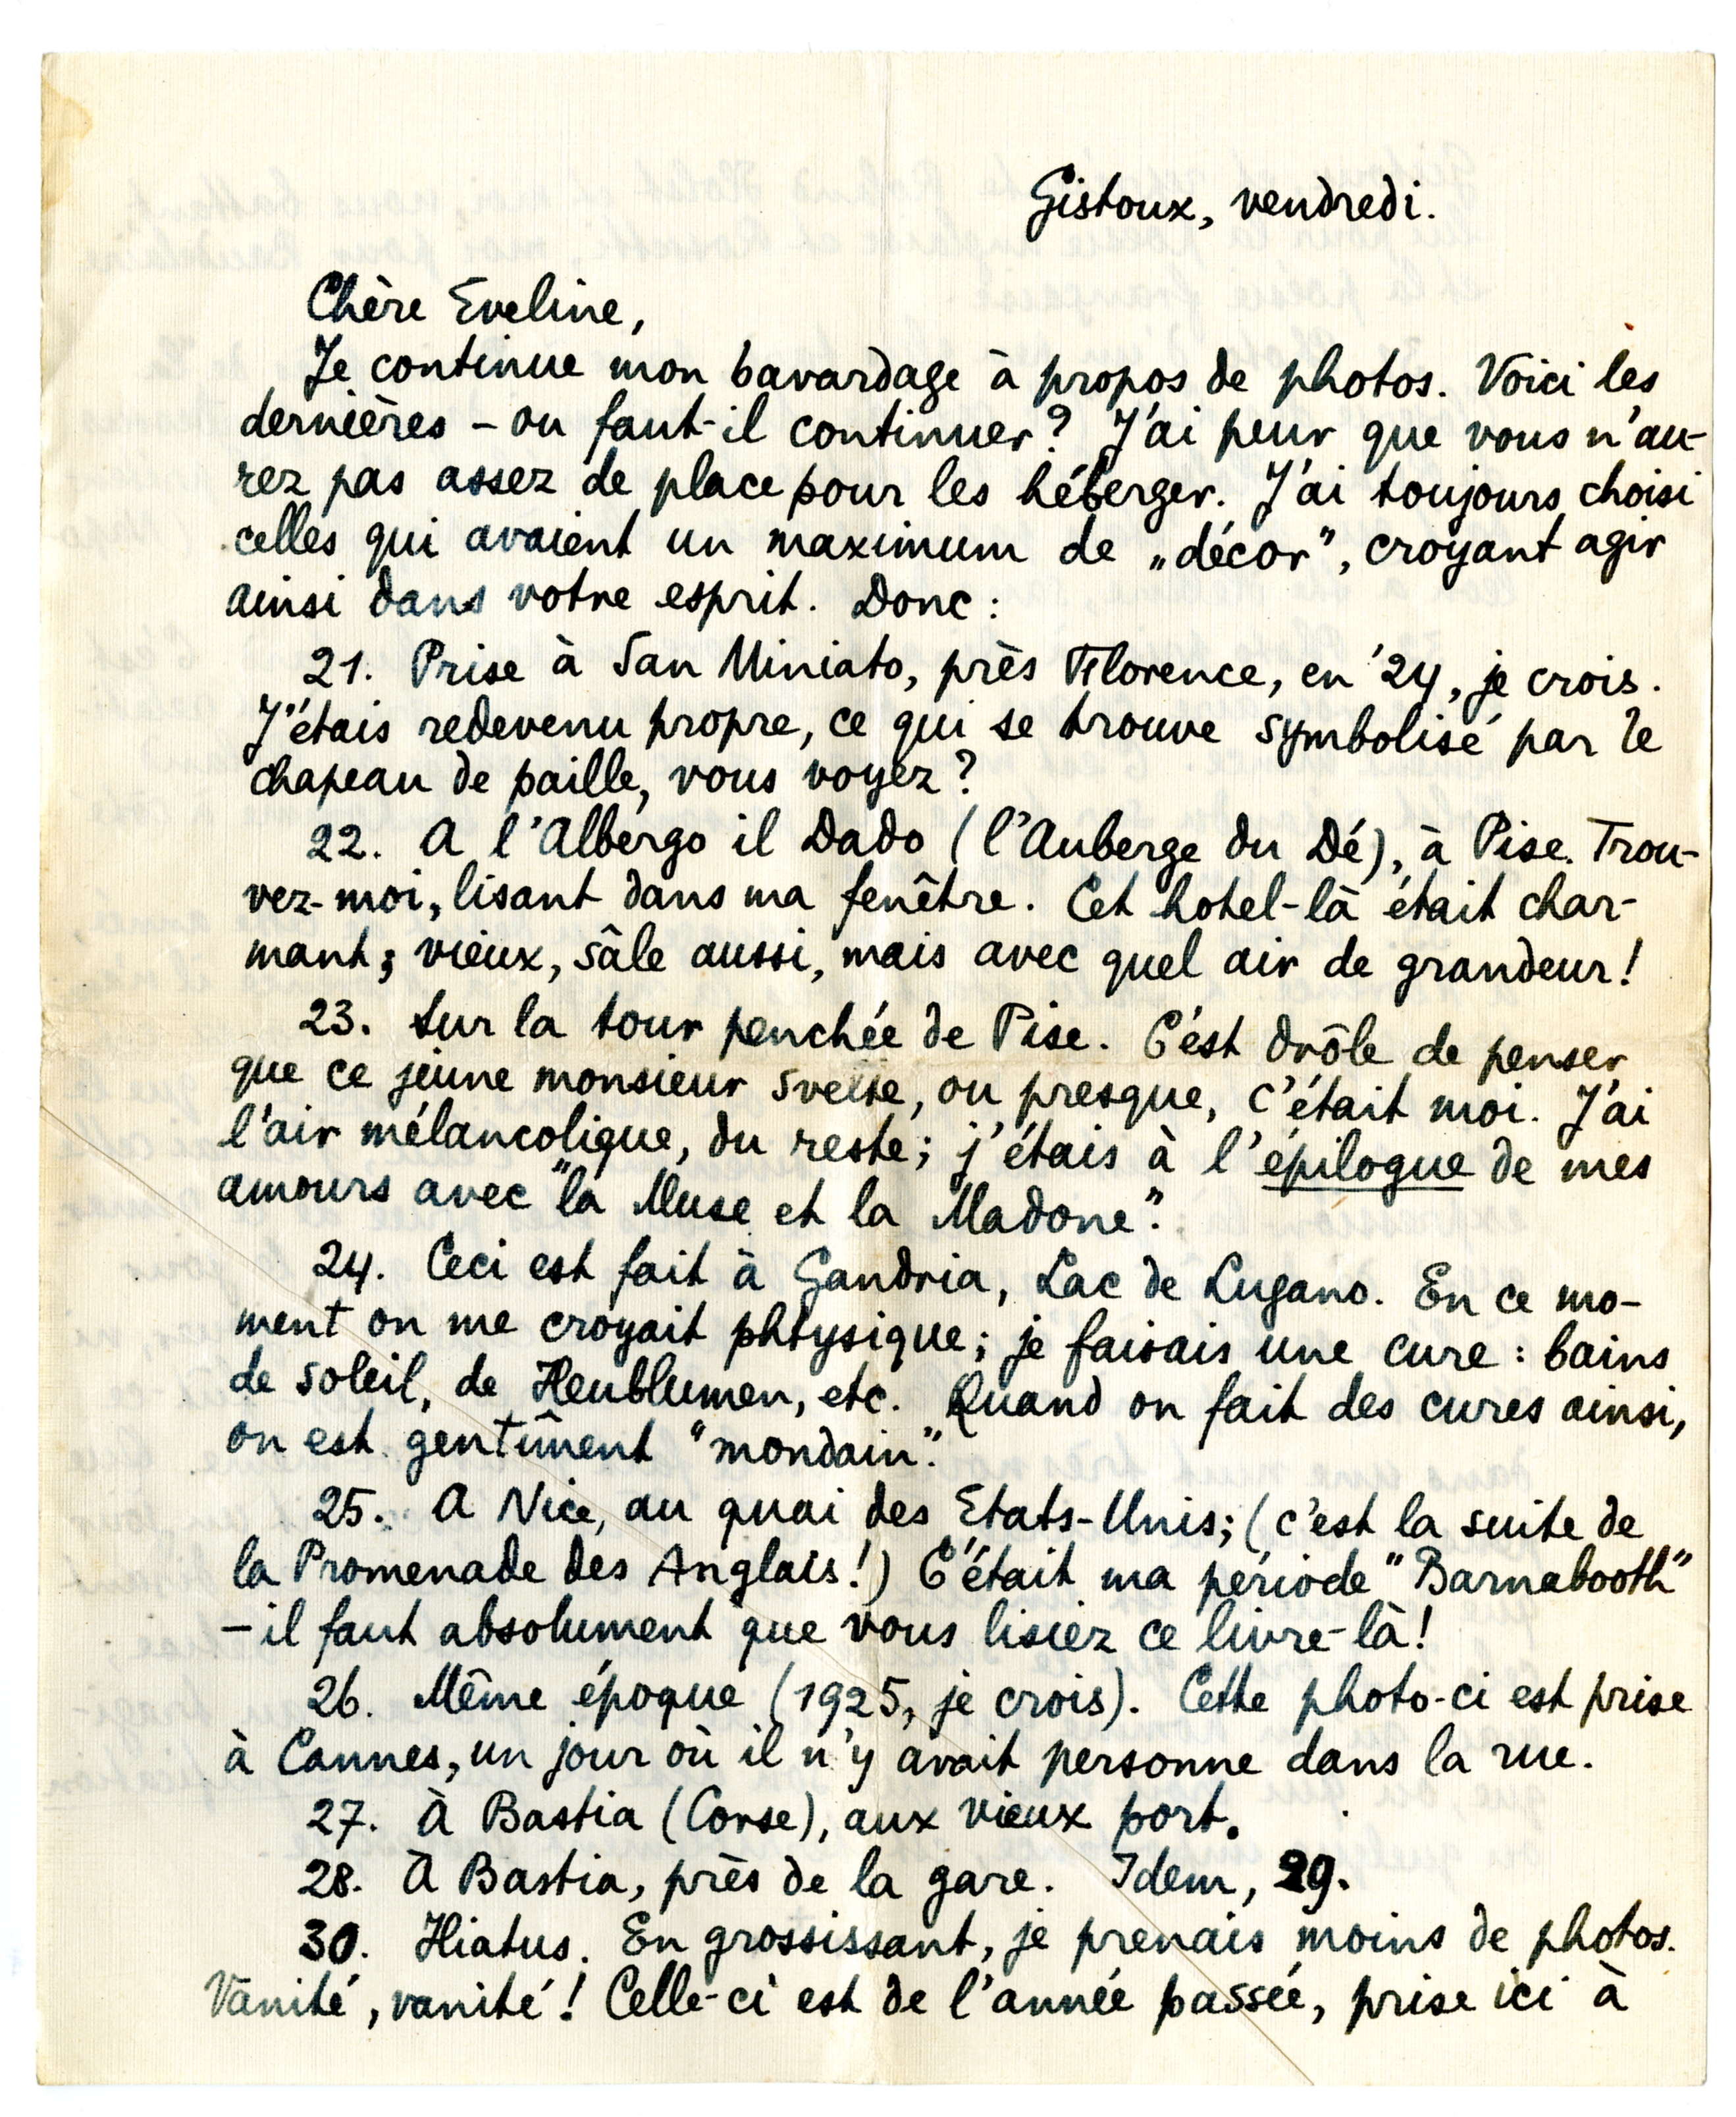 Gistoux, vendredi.
Chère Eveline,
Je continue mon bavardage à propos de photos. Voici les
dernières – ou faut-il continuer? J'ai peur que vous n'au-
rez pas assez de place pour les héberger. J'ai toujours choisi
celles qui avaient un maximum de „décor”, croyant agir
ainsi dans votre esprit. Donc:
21. Prise à San Miniato, près Florence, en '24, je crois.
J'étais redevenu propre, ce qui se trouve symbolisé par le
chapeau de paille, vous voyez?
22. A l'Albergo il Dado (l'Auberge du Dé), à Pise. Trou-
vez-moi, lisant dans ma fenêtre. Cet hotel-là était char-
mant; vieux, sâle aussi, mais avec quel air de grandeur!
23. Sur la tour penchée de Pise. C'est drôle de penser
que ce jeune monsieur svelte, ou presque, c'était moi. J'ai
l'air mélancolique, du reste; j'étais à l'épilogue de mes
amours avec "la Muse et la Madone".
24. Ceci est fait à Gandria, Lac de Lugano. En ce mo-
ment on me croyait phtysique; je faisais une cure: bains
de soleil, de Heublumen, etc. Quand on fait des cures ainsi,
on est gentîment "mondain".
25. A Nice, au quai des Etats-Unis; (c'est la suite de
la Promenade des Anglais!) C'était ma période "Barnabooth"
– il faut absolument que vous lisiez ce livre-là!
26. Même époque (1925, je crois). Cette photo-ci est prise
à Cannes, un jour où il n'y avait personne dans la rue.
27. À Bastia (Corse), aux vieux port.
28. À Bastia, près de la gare. Idem, 29.
30. Hiatus. En grossissant, je prenais moins de photos.
Vanité, vanité! Celle-ci est de l'année passée, prise ici à